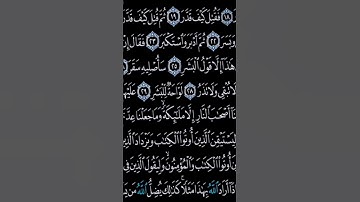 ﴿١٨﴾ فَقُتِلَ كَيْفَ قَدَّرَ ﴿١٩﴾ ثُمَّ قُتِلَ كَيْفَ قَدَّرَ
وَبَسَرَ ﴿٢٢﴾ ثُمَّ أَدْبَرَ وَٱسْتَكْبَرَ ﴿٢٣﴾ فَقَالَ إِنْ
هَٰذَآ إِلَّا قَوْلُ ٱلْبَشَرِ ﴿٢٥﴾ سَأُصْلِيهِ سَقَرَ
لَا تُبْقِى وَلَا تَذَرُ ﴿٢٨﴾ لَوَّاحَةٌ لِّلْبَشَرِ ﴿٢٩﴾ عَلَيْهَا
نَآ أَصْحَٰبَ ٱلنَّارِ إِلَّا مَلَٰٓئِكَةً وَمَا جَعَلْنَا عِدَّ
لِيَسْتَيْقِنَ ٱلَّذِينَ أُوتُوا۟ ٱلْكِتَٰبَ وَيَزْدَادَ ٱلَّذِينَ
نَ أُوتُوا۟ ٱلْكِتَٰبَ وَٱلْمُؤْمِنُونَ وَلِيَقُولَ ٱلَّذِينَ فِى
ذَآ أَرَادَ ٱللَّهُ بِهَٰذَا مَثَلًا كَذَٰلِكَ يُضِلُّ ٱللَّهُ مَن يَ